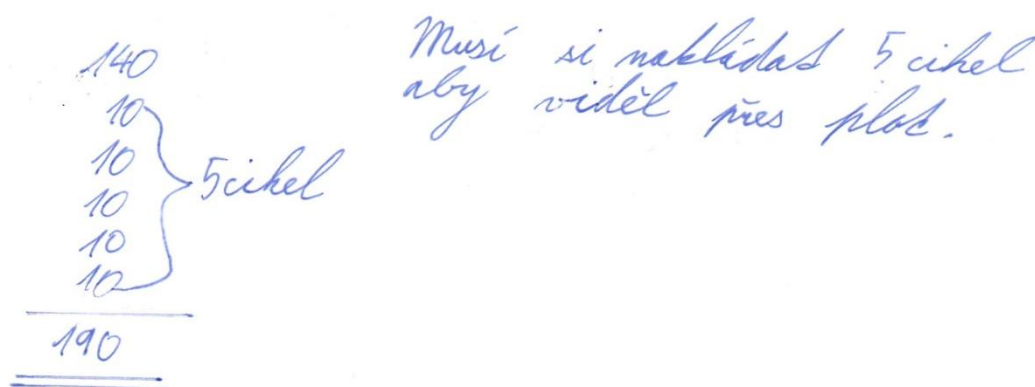 140
10
10
10
10
10
5 cihel
190
Musí si nakládat 5 cihel
aby viděl přes plot.